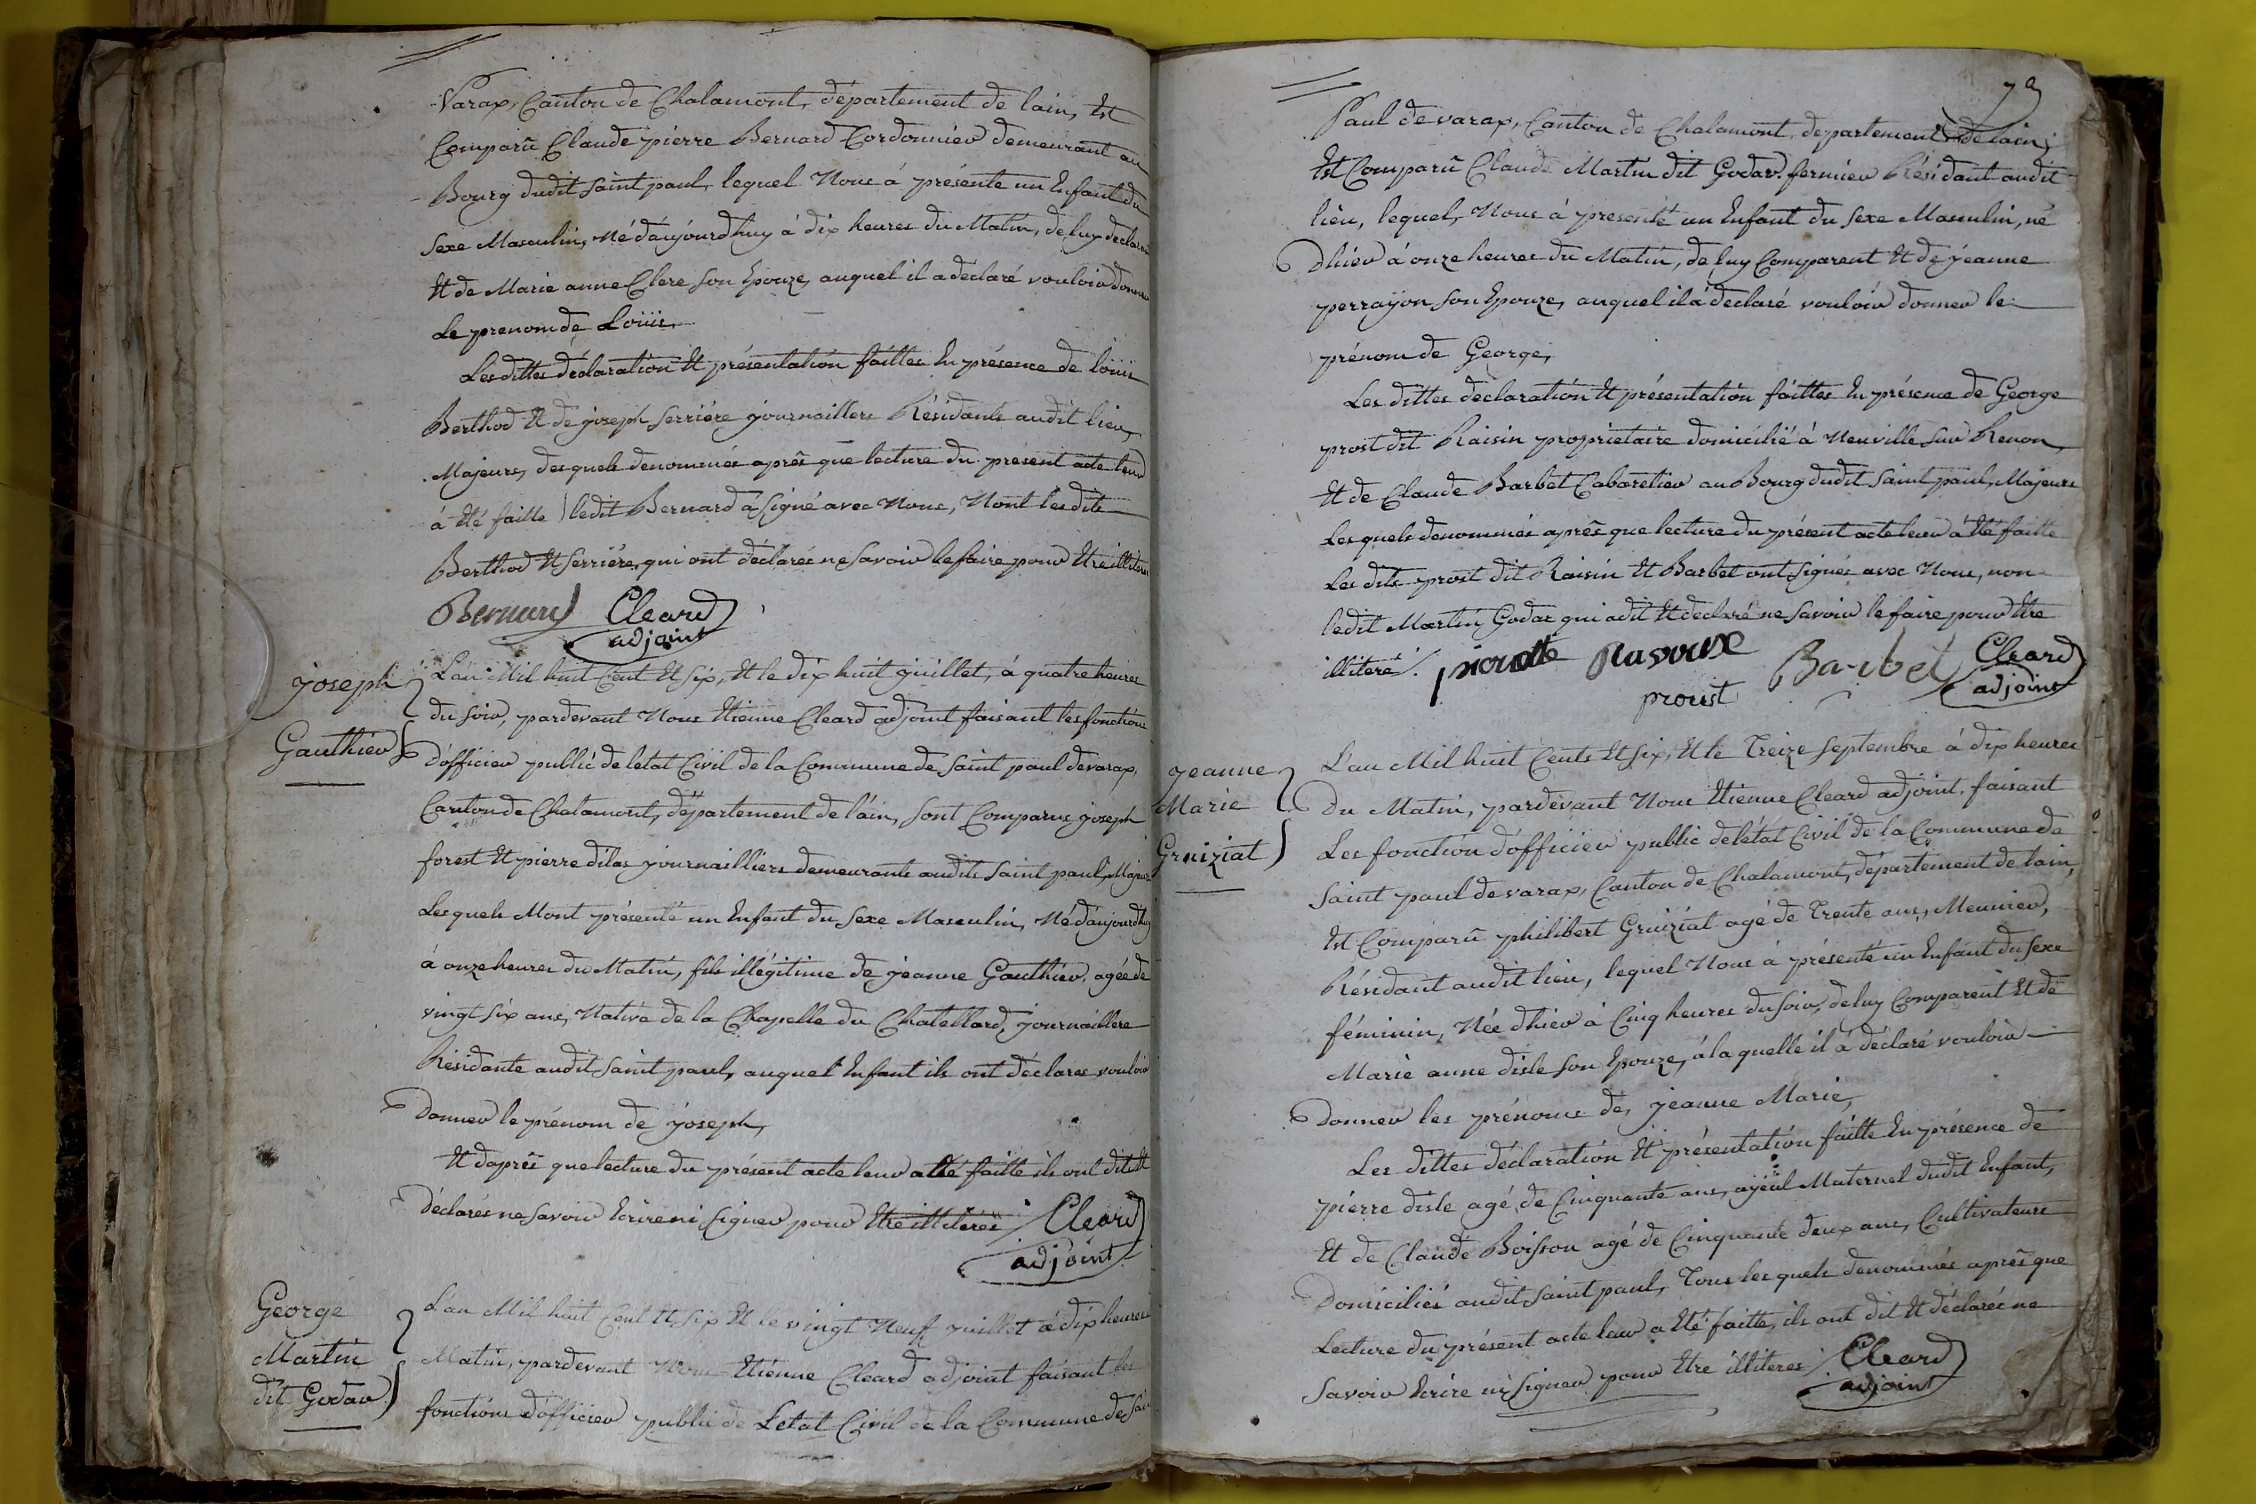 Varax, Canton de Chalamont, département de lain, Est
Comparû Claude pierre Bernard Cordonnier demeurant au
Bourg dudit saint paul, lequel Nous á présente un Enfant du
sexe Masculin, Né daujourdhuy à dix heures du Matin, de luy declarant
Et de Marie anne Clere son Epouze, auquel il a déclaré vouloir donner
Le prenom de Loüis,
Lesdittes déclaration Et présentation faittes En présence de loüis
Berthod Et de joseph serriére journailliers Résidants audit lieu,
Majeurs, desquels denommés aprês que lecture du présent acte leur
á Eté faitte ledit Bernard a signé avec Nous, Nont lesdits
Berthod Et serriére, qui ont déclarés ne savoir le faire pour Etre illiteres
Bernard Cleard
adjoint
joseph
Gauthier
L'an Mil huit Cent Et six, Et le dix huit juillet, á quatre heures
du soir, pardevant Nous Etienne Cleard adjoint faisant les fonctions
d'officier public de letat Civil de la Commune de saint paul devarax,
Canton de Chalamont, département de láin, sont Comparus joseph
forest Et pierre dilas journailliers demeurants audits saint paul, Majeurs
Lesquels Mont présenté un Enfant du sexe Masculin, Né daujourdhuy
á onze heures du Matin, fils illégitime de jeanne Gauthier, agée de
vingt six ans, Native de la Chapelle du Chatellard, journaillére
Résidante audit saint paul, auquel Enfant ils ont déclarés vouloir
donner le prénom de joseph,
Et daprês que lecture du présent acte leur a Eté faitte ils ont dits Et
déclarés ne savoir Ecrire ni signer pour Etre illiteres Cleard
adjoint
George
Martin
dit Godar
L'an Mil huit Cent Et six Et le vingt Neuf juillet á dix heures
Matin, pardevant Nous Etienne Cleard adjoint faisant les
fonctions d'officier public de Letat Civil de la Commune de Saint
73
Paul de varax, Canton de Chalamont, departement de lain,
Est Comparû Claude Martin dit Godar fermier Résidant audit
lieu, lequel, Nous á presenté un Enfant du sexe Masculin, né
dhier á onze heures du Matin, de luy Comparent Et de jeanne
perraÿon son Epouze, auquel il á declaré vouloir donner le
prénom de George,
Les dittes declaration Et présentation faittes En présence de George
prost dit Raisin proprietaire domicilié á Neuville sur Renon
Et de Claude Barbet Cabaretier au Bourg dudit saint paul, Majeurs
Lesquels denommés aprês que lecture du présent acte leur á Eté faitte
Les dits prost dit Raisin Et Barbet ont signés avec Nous, non
ledit Martin Godar qui a dit Et declaré ne savoir le faire pour Etre
illiteré. Barbet Cleard
prost adjoint
jeanne
Marie
Gruiziat
L'an Mil huit Cents Et six, Et le Treize septembre á dix heures
du Matin, pardevant Nous Etienne Cleard adjoint, faisant
Les fonction d'officier public de létat Civil de la Commune de
saint paul de varax, Canton de Chalamont, département de lain,
Est Comparû philibert Gruiziat agé de Trente ans, Meunier,
Résidant audit lieu, lequel Nous á présenté un Enfant du sexe
féminin, Née dhier á Cinq heures du soir, de luy Comparent Et de
Marie anne disle son Epouze, á la quelle il a déclaré vouloir
donner les prénoms de, jeanne Marie,
Les dittes déclaration Et présentation faitte En présence de
pierre disle agé de Cinquante ans, ayeul Maternel dudit Enfant,
Et de Claude Boisson agé de Cinquante deux ans, Cultivateurs
Domiciliés audit saint paul, Tous lesquels denommés aprês que
Lecture du présent acte leur a Eté faitte, ils ont dit Et déclarés ne
savoir Ecrire ni signer pour Etre illiteres Cleard
adjoint